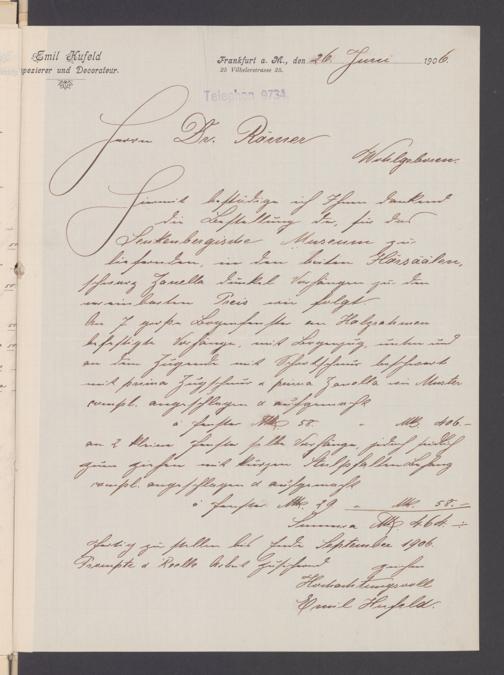 Emil Hufeld
Tapezierer und Decorateur.
Frankfurt a. M., den 26. Juni 1906.
25 Vilbelerstrasse 25.
Telephon 9734.
Herrn Dr. Römer
Wohlgeboren.
Hiermit bestätige ich Ihnen dankend
die Bestellung der für das
Senkenbergische Museum zu
liefernden, in den beiden Hörsäälen,
schwarz Zanella dunkel Vorhängen zu den
vereinbarten Preis wie folgt.
An 7 große Bogenfenster an Holzrahmen
befestigte Vorhänge, mit Bogenzug, unten und
an dem Zugende mit beschwert
mit prima Zugschnur & prima Zanella wie Muster
compl. angeschlagen & aufgemacht
à Fenster Mk 58. " Mk. 406.–
an 2 kleinen Fenster selbe Vorhänge, jedoch seitlich
zum ziehen mit kurzem
compl. angeschlagen & aufgemacht
à Fenster Mk. 29 " Mk. 58.–
Summa Mk 464.–
Fertig zu stellen bis Ende September 1906.
Prompte & Reelle Arbeit zusichernd zeichne
Hochachtungsvoll
Emil Hufeld.